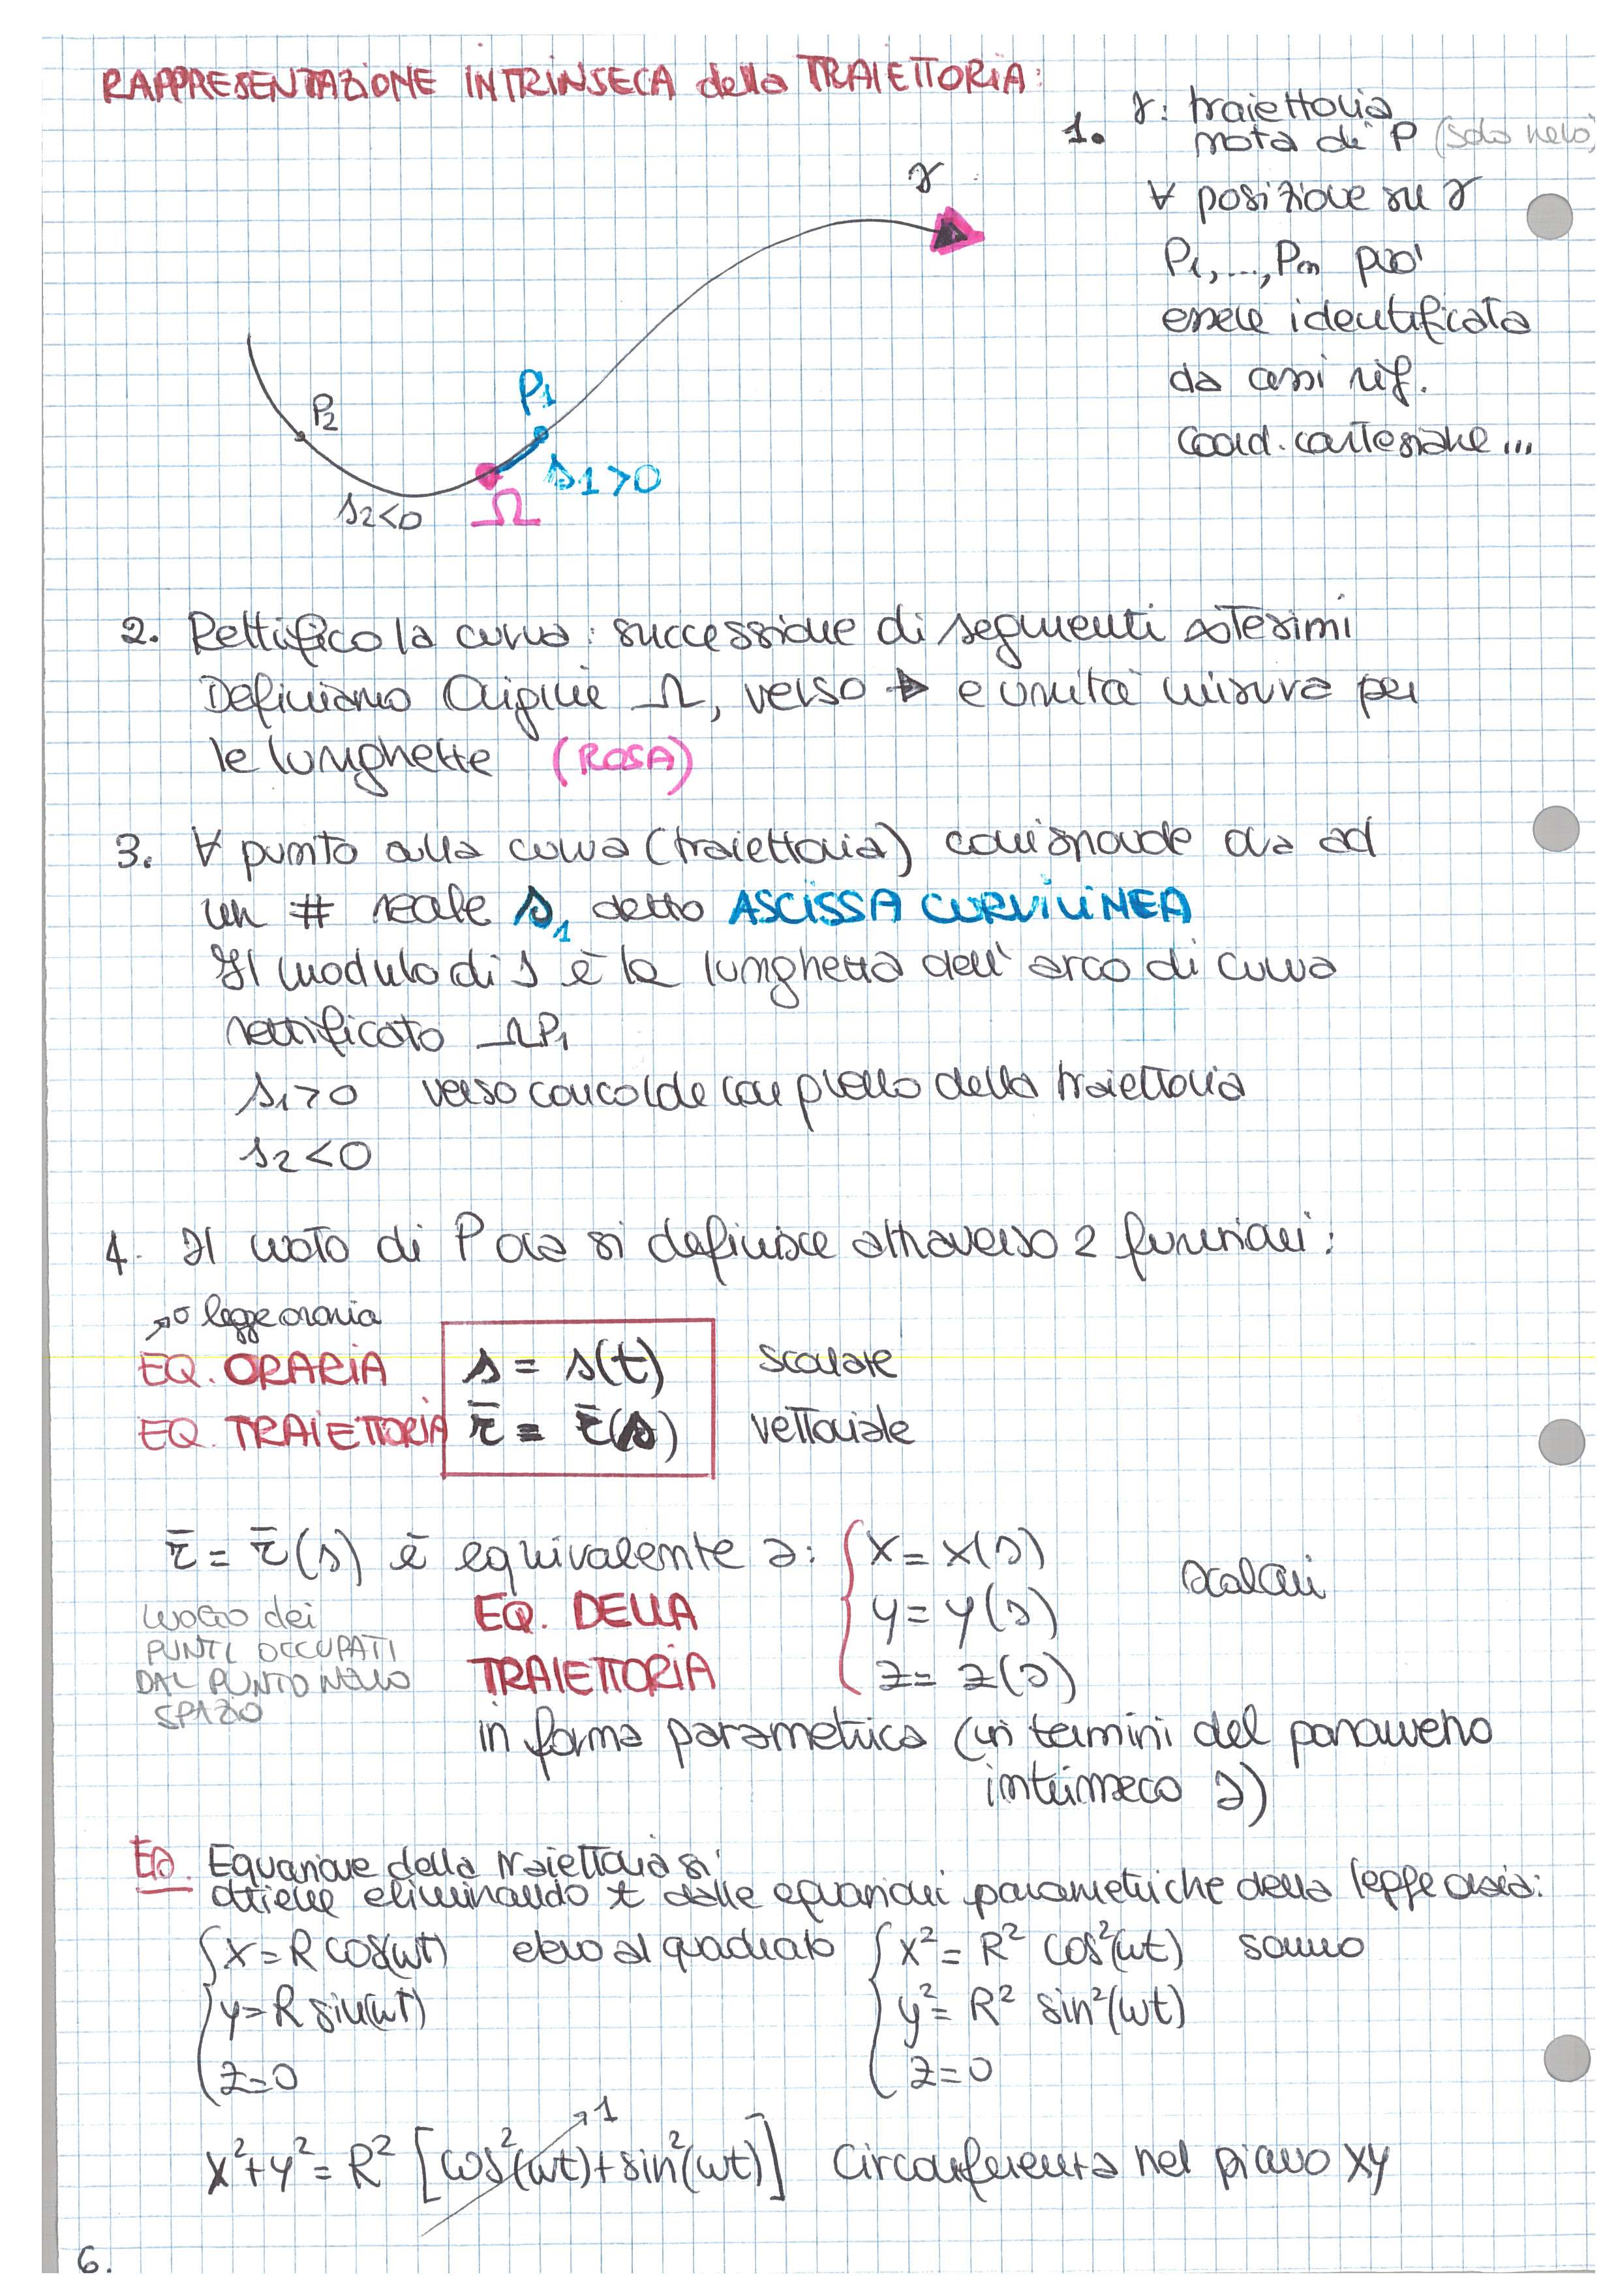 RAPPRESENTAZIONE INTRINSECA della TRAIETTORIA:
1. γ: traiettoria
nota di P (solo nero)
∀ posizione su γ
P1, ..., Pm può
essere identificata
da assi rif.
coord. cartesiane ...
γ
P2
P1
s1>0
s2<0
Ω
2. Rettifico la curva: successione di segmenti ∞tesimi
Definiamo Origine Ω, verso → e unità misura per
le lunghezze (ROSA)
3. ∀ punto alla curva (traiettoria) corrisponde ora ad
un # reale s1 detto ASCISSA CURVILINEA
Il modulo di s è la lunghezza dell' arco di curva
rettificato ΩP1
s1>0 verso concorde con quello della traiettoria
s2<0
4. Il moto di P ora si definisce attraverso 2 funzioni:
→ o legge oraria
EQ. ORARIA s = s(t) scalare
EQ. TRAIETTORIA r̄ = r̄(s) vettoriale
r̄ = r̄(s) è equivalente a: { x = x(s)
y = y(s) scalari
z = z(s)
LUOGO dei
PUNTI OCCUPATI
DAL PUNTO NELLO
SPAZIO
EQ. DELLA
TRAIETTORIA
in forma parametrica (in termini del parametro
intrinseco s)
Es. Equazione della traiettoria si
ottiene eliminando t dalle equazioni parametriche della legge oraria:
{ x = R cos(ωt) elevo al quadrato { x² = R² cos²(ωt) sommo
y = R sin(ωt) y² = R² sin²(ωt)
z = 0 z = 0
x² + y² = R² [cos²(ωt) + sin²(ωt)] → 1 Circonferenza nel piano xy
6.